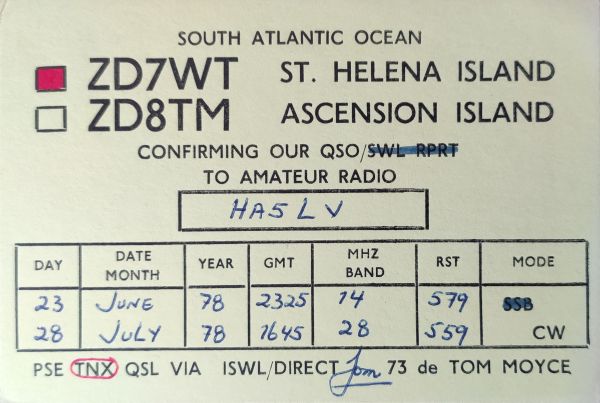 SOUTH ATLANTIC OCEAN
ZD7WT ST. HELENA ISLAND
ZD8TM ASCENSION ISLAND
CONFIRMING OUR QSO/SWL RPRT
TO AMATEUR RADIO
HA5LV
DAY DATE MONTH YEAR GMT MHZ BAND RST MODE
23 JUNE 78 2325 14 579 SSB
28 JULY 78 1645 28 559 CW
PSE TNX QSL VIA ISWL/DIRECT Tom 73 de TOM MOYCE